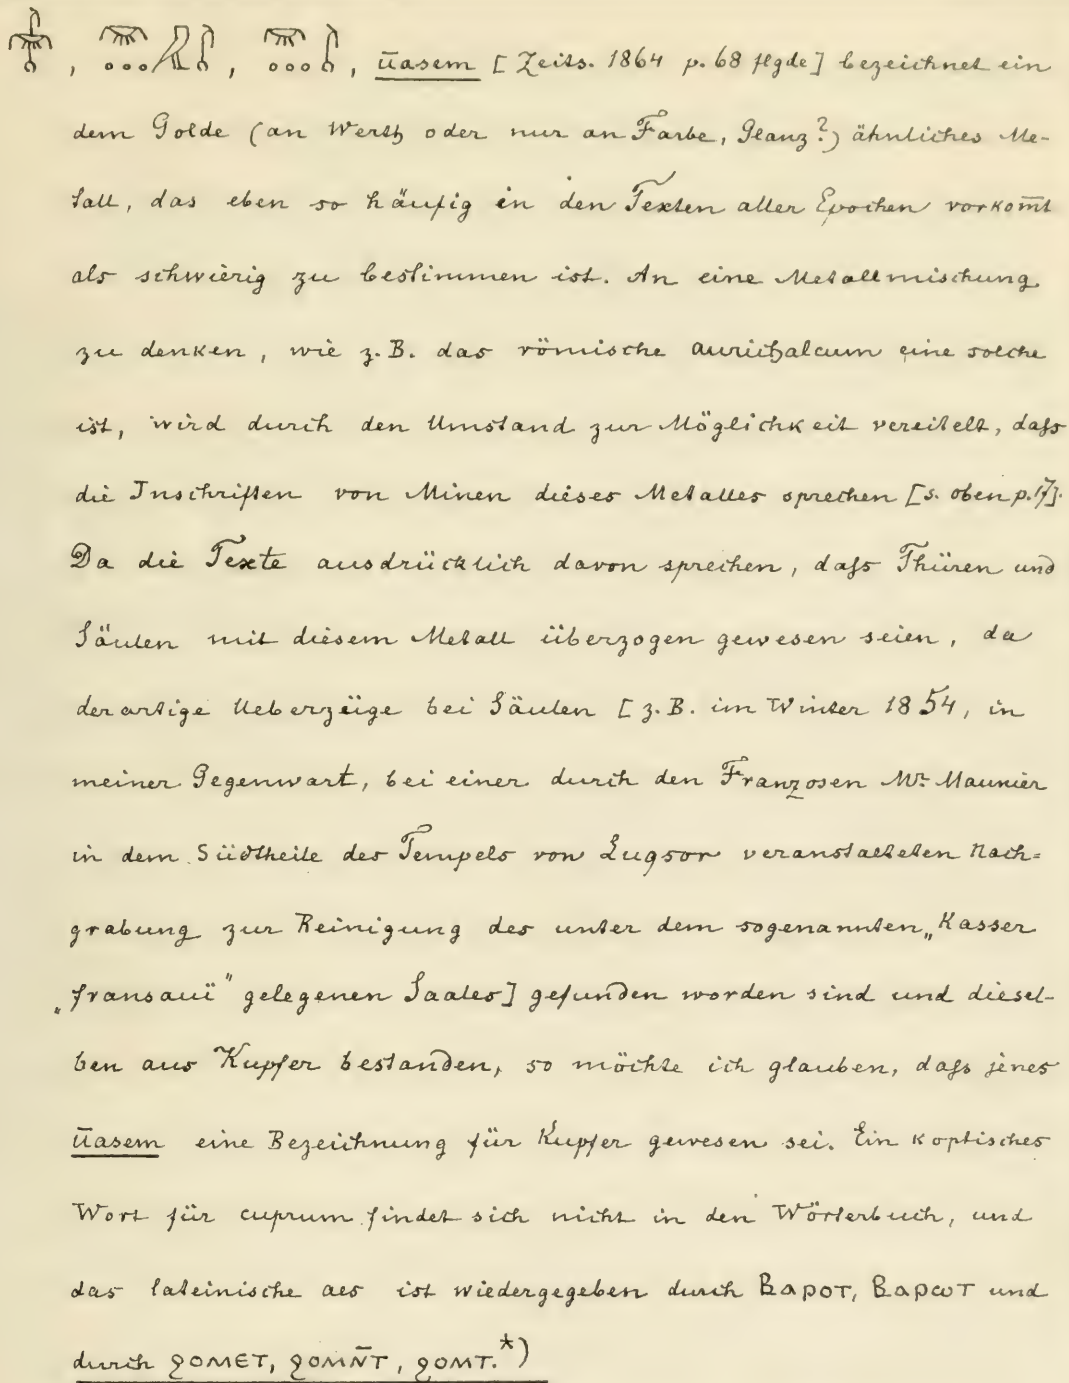 , , , u̅asem [Zeits. 1864 p. 68 flgde] bezeichnet ein
dem Golde (an Werth oder nur an Farbe, Glanz?) ähnliches Me-
tall, das eben so häufig in den Texten aller Epochen vorkom̅t
als schwierig zu bestimmen ist. An eine Metallmischung
zu denken, wie z.B. das römische aurichalcum eine solche
ist, wird durch den Umstand zur Möglichkeit vereitelt, daſs
die Inschriften von Minen dieses Metalles sprechen [s. oben p. 17].
Da die Texte ausdrücklich davon sprechen, daſs Thüren und
Säulen mit diesem Metall überzogen gewesen seien, da
derartige Ueberzüge bei Säulen [z.B. im Winter 1854, in
meiner Gegenwart, bei einer durch den Franzosen Mr. Maunier
in dem Südtheile des Tempels von Luqsor veranstalteten Nach=
grabung zur Reinigung des unter dem sogenannten „Kasser
„fransauï" gelegenen Saales] gefunden worden sind und diesel-
ben aus Kupfer bestanden, so möchte ich glauben, daſs jenes
u̅asem eine Bezeichnung für Kupfer gewesen sei. Ein koptisches
Wort für cuprum findet sich nicht in den Wörterbuch, und
das lateinische aes ist wiedergegeben durch ⲂⲀⲢⲞⲦ, ⲂⲀⲢⲰⲦ und
durch ϨⲞⲘⲈⲦ, ϨⲞⲘⲚ̅Ⲧ, ϨⲞⲘⲦ.*)